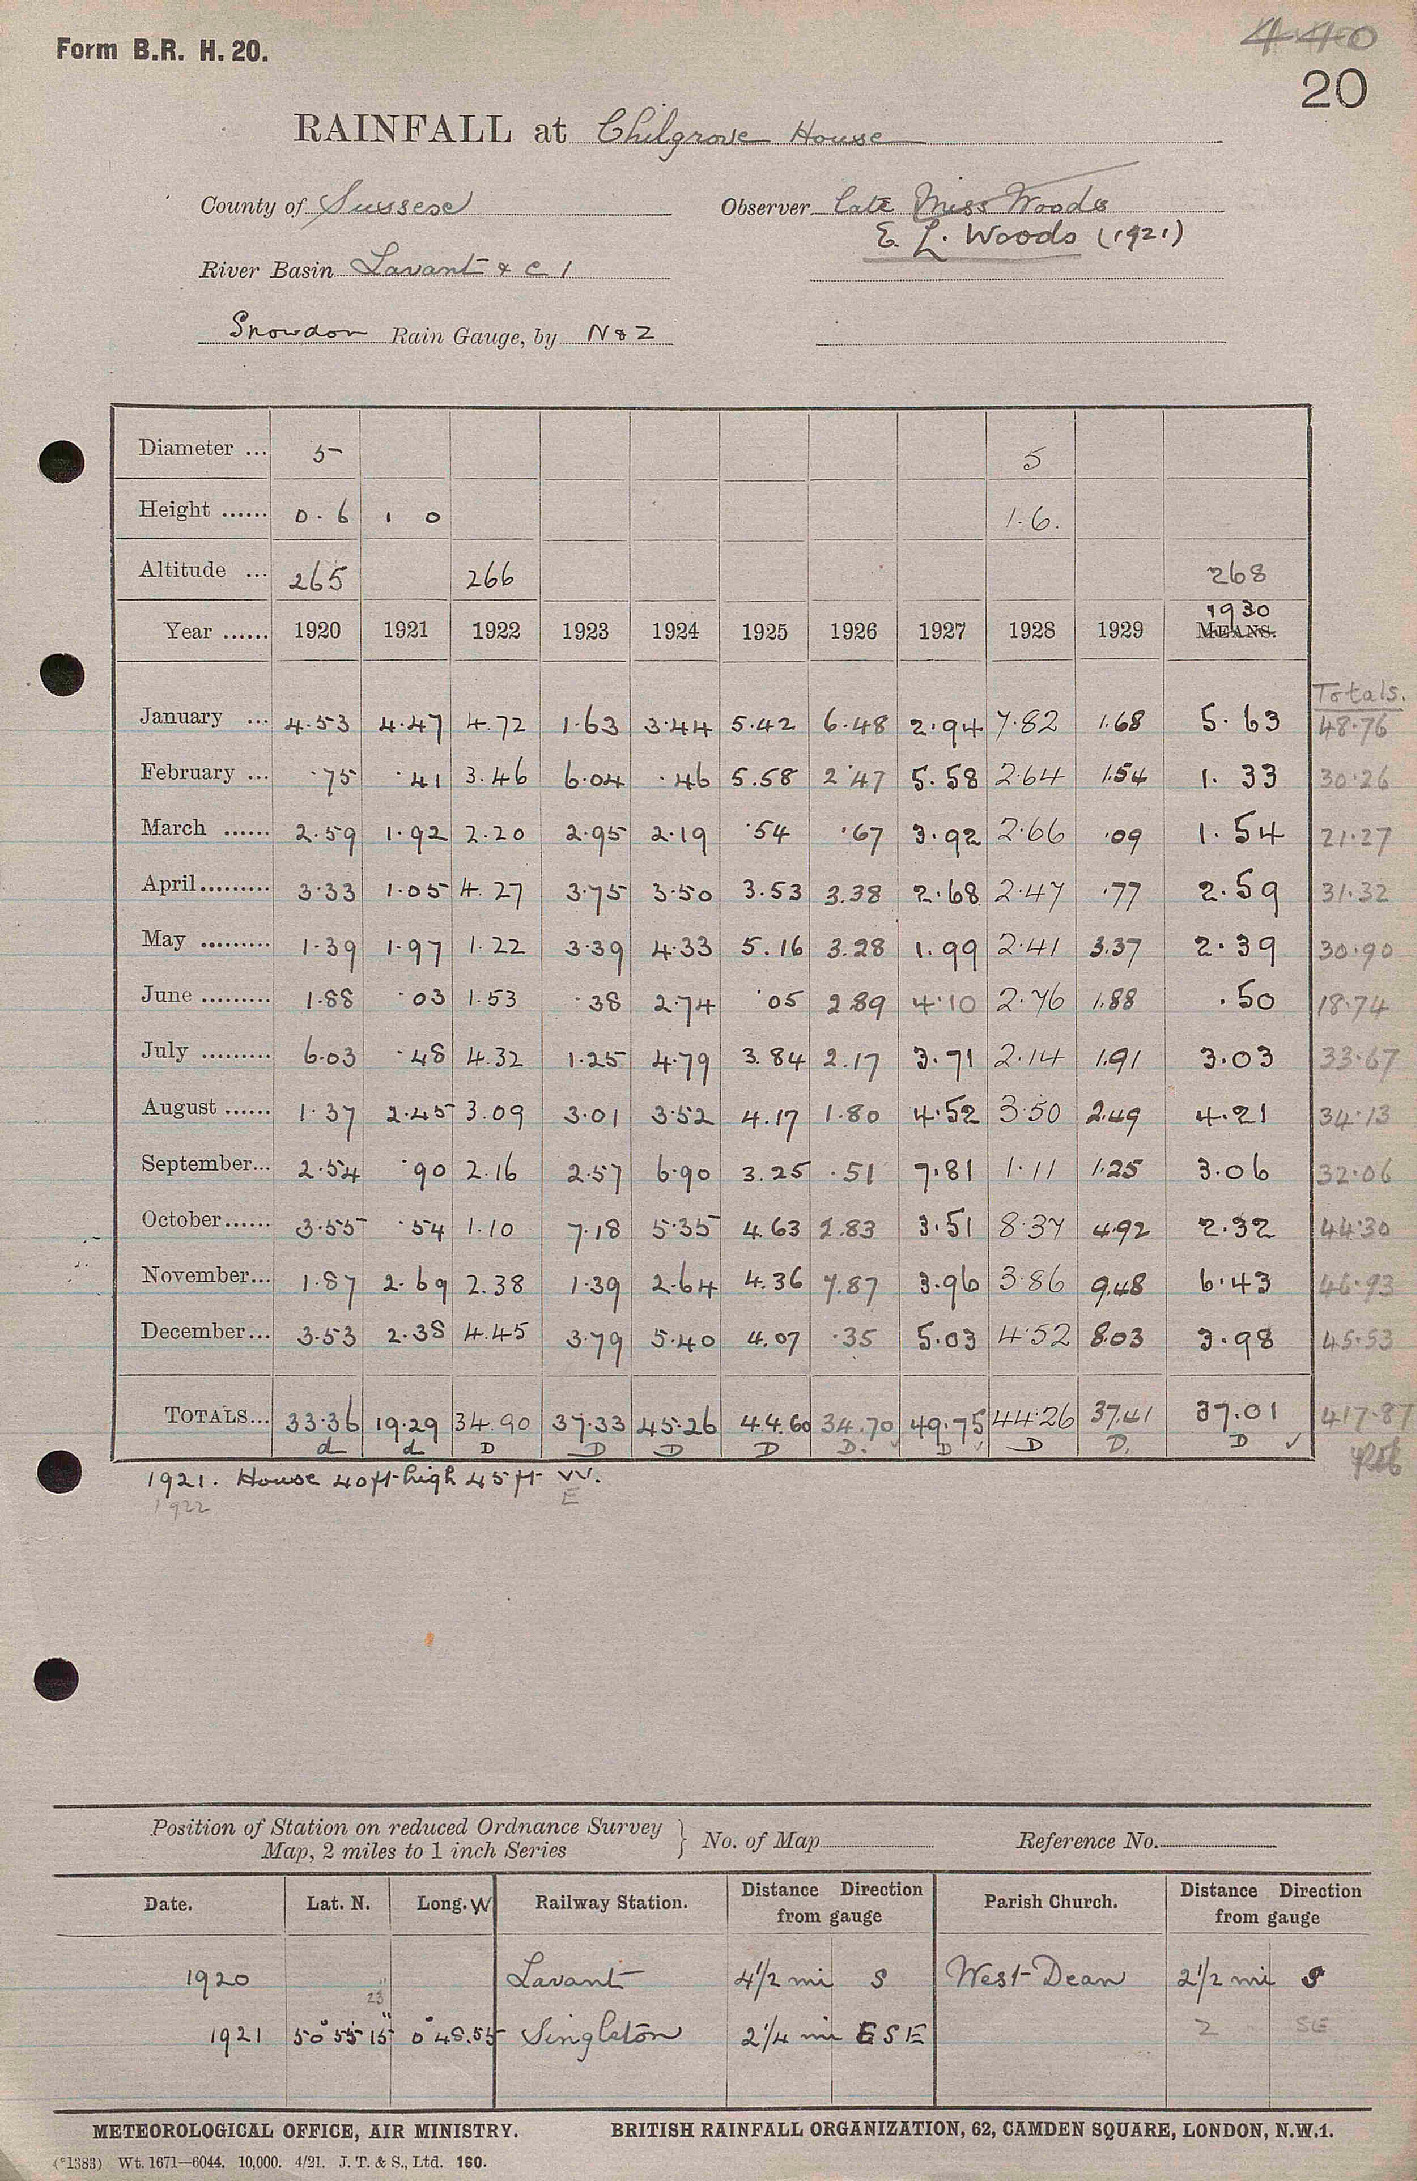 Form B.R. H. 20.
440
20
RAINFALL at Chilgrove House
County of Sussex Observer late Miss Woods
E. L. Woods (1921)
River Basin Lavant & C 1
Snowdon Rain Gauge, by N & Z
Diameter ... 5 5
Height ...... 0.6 1 0 1.6.
Altitude ... 265 266 268
1930
Year ...... 1920 1921 1922 1923 1924 1925 1926 1927 1928 1929 MEANS.
Totals.
January ... 4.53 4.47 4.72 1.63 3.44 5.42 6.48 2.94 7.82 1.68 5.63 48.76
February ... .75 .41 3.46 6.04 .46 5.58 2.47 5.58 2.64 1.54 1.33 30.26
March ...... 2.59 1.92 2.20 2.95 2.19 .54 .67 3.92 2.66 .09 1.54 21.27
April......... 3.33 1.05 4.27 3.75 3.50 3.53 3.38 2.68 2.47 .77 2.59 31.32
May ......... 1.39 1.97 1.22 3.39 4.33 5.16 3.28 1.99 2.41 3.37 2.39 30.90
June ......... 1.88 .03 1.53 .38 2.74 .05 2.89 4.10 2.76 1.88 .50 18.74
July ......... 6.03 .48 4.32 1.25 4.79 3.84 2.17 3.71 2.14 1.91 3.03 33.67
August ...... 1.37 2.45 3.09 3.01 3.52 4.17 1.80 4.52 3.50 2.49 4.21 34.13
September... 2.54 .90 2.16 2.57 6.90 3.25 .51 7.81 1.11 1.25 3.06 32.06
October...... 3.55 .54 1.10 7.18 5.35 4.63 2.83 3.51 8.37 4.92 2.32 44.30
November... 1.87 2.69 2.38 1.39 2.64 4.36 7.87 3.96 3.86 9.48 6.43 46.93
December... 3.53 2.38 4.45 3.79 5.40 4.07 .35 5.03 4.52 8.03 3.98 45.53
TOTALS... 33.36 19.29 34.90 37.33 45.26 44.60 34.70 49.75 44.26 37.41 37.01 417.87
d d D D D D D. ✓ D ✓ D D. D ✓
1921. House 40 ft high 45 ft W.
1922 E
Position of Station on reduced Ordnance Survey
Map, 2 miles to 1 inch Series } No. of Map Reference No.
Date. Lat. N. Long. W Railway Station. Distance Direction from gauge Parish Church. Distance Direction from gauge
1920 Lavant 4 1/2 mi S West Dean 2 1/2 mi S
23"
1921 50° 55' 15" 0° 48.55 Singleton 2 1/4 mi ESE 2 SE
METEOROLOGICAL OFFICE, AIR MINISTRY. BRITISH RAINFALL ORGANIZATION, 62, CAMDEN SQUARE, LONDON, N.W.1.
(*1383) Wt. 1671—6044. 10,000. 4/21. J. T. & S., Ltd. 160.